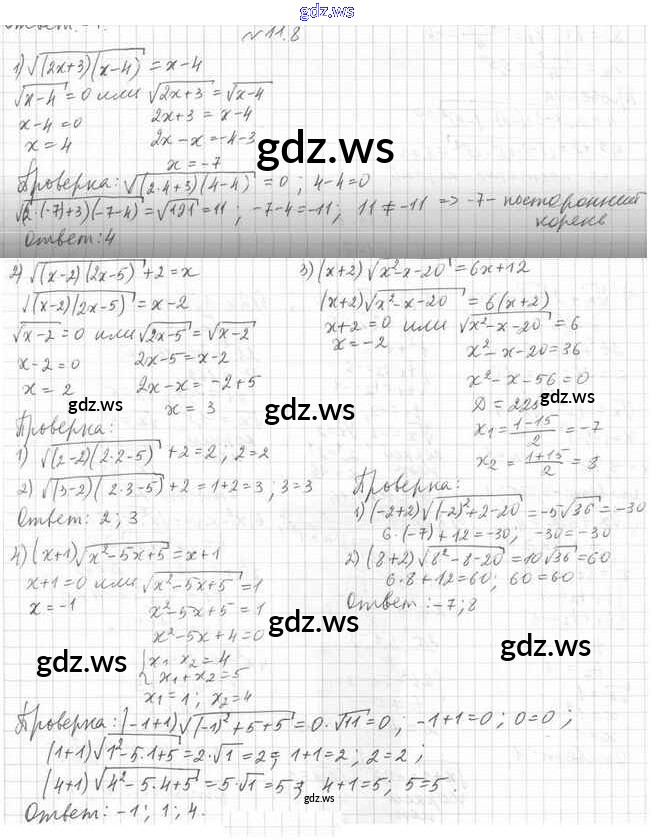 gdz.ws
Ответ: 4.
№ 11.8
1) √((2x+3)(x-4)) = x-4
√(x-4) = 0 или √(2x+3) = √(x-4)
x-4=0 2x+3 = x-4
x = 4 2x-x = -4-3
x = -7
gdz.ws
Проверка: √((2·4+3)(4-4)) = 0 ; 4-4=0
√(2·(-7)+3)(-7-4) = √121 = 11 ; -7-4=-11; 11 ≠ -11 => -7- посторонний
корень
Ответ: 4
2) √((x-2)(2x-5)) + 2 = x
√((x-2)(2x-5)) = x-2
√(x-2) = 0 или √(2x-5) = √(x-2)
x-2=0 2x-5 = x-2
x = 2 2x-x = -2+5
x = 3
gdz.ws
gdz.ws
Проверка:
1) √((2-2)(2·2-5)) + 2 = 2 ; 2=2
2) √((3-2)(2·3-5)) + 2 = 1+2=3 ; 3=3
Ответ: 2; 3
3) (x+2)√(x²-x-20) = 6x+12
(x+2)√(x²-x-20) = 6(x+2)
x+2=0 или √(x²-x-20) = 6
x=-2 x²-x-20=36
x²-x-56=0
D = 225
gdz.ws
x₁ = (1-15)/2 = -7
x₂ = (1+15)/2 = 8
Проверка:
1) (-2+2)√((-2)²+2-20) = -5√36 = -30
6·(-7)+12=-30; -30=-30
2) (8+2)√(8²-8-20) = 10√36 = 60
6·8+12=60; 60=60
Ответ: -7; 8
4) (x+1)√(x²-5x+5) = x+1
x+1=0 или √(x²-5x+5) = 1
x=-1 x²-5x+5=1
x²-5x+4=0
{x₁x₂=4
x₁+x₂=5
x₁=1; x₂=4
gdz.ws
gdz.ws
gdz.ws
Проверка: (-1+1)√((-1)²+5+5) = 0·√11 = 0; -1+1=0; 0=0;
(1+1)√(1²-5·1+5) = 2·√1 = 2; 1+1=2; 2=2;
(4+1)√(4²-5·4+5) = 5·√1 = 5; 4+1=5; 5=5.
gdz.ws
Ответ: -1; 1; 4.